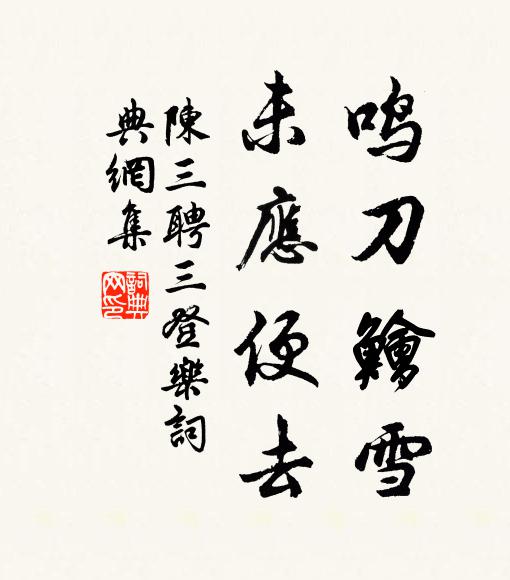 鸣刀鱠雪
未應便去
陳三聘三登樂詞
典網集
詞典网印